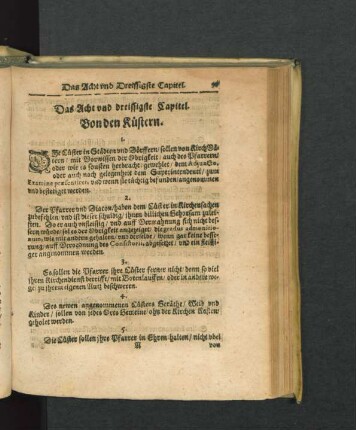 Das Acht vnd Dreissigste Capitel.
Das Acht vnd dreissigste Capitel.
Von den Küstern.
1.
Die Cüster in Städten vnd Dörffern / sollen von
mit Vorwissen der Obrigkeit / auch des Pfarrern /
oder wie es sonsten herbracht / gewehlet / dem
oder auch nach gelegenheit dem Superintendenti / zum
Examine / vnd wenn sie tüchtig befunden / angenommen
vnd bestetiget werden.
2.
Der Pfarrer vnd Diacon / haben dem Cüster in Kirchensachen
zubefehlen / vnd ist dieser schüldig / ihnen billichen Gehorsam zulei-
sten. Da er auch vnfleissig / vnd auff Vermahnung sich nicht bes-
sern würde / sol es der Obrigkeit angezeiget /
wie mit andern gehalten / vnd derselbe / wenn gar keine besse-
rung / auff Verordnung des Consistorii, abgeschaffet / vnd ein fleissi-
ger angenommen werden.
3.
Es sollen die Pfarrer ihre Cüster ferner nicht / denn so viel
ihren Kirchendienst betrifft / mit Botenlauffen / oder in andere we-
ge zu ihrem eigenen Nutz beschweren.
4.
Des newen angenommenen Cüsters Geräthe / Weib vnd
Kinder / sollen von jedes Orts Gemeine / ohn der Kirchen Kosten /
geholet werden.
5.
Die Cüster sollen ihre Pfarrer in Ehren halten / nicht vbel
von